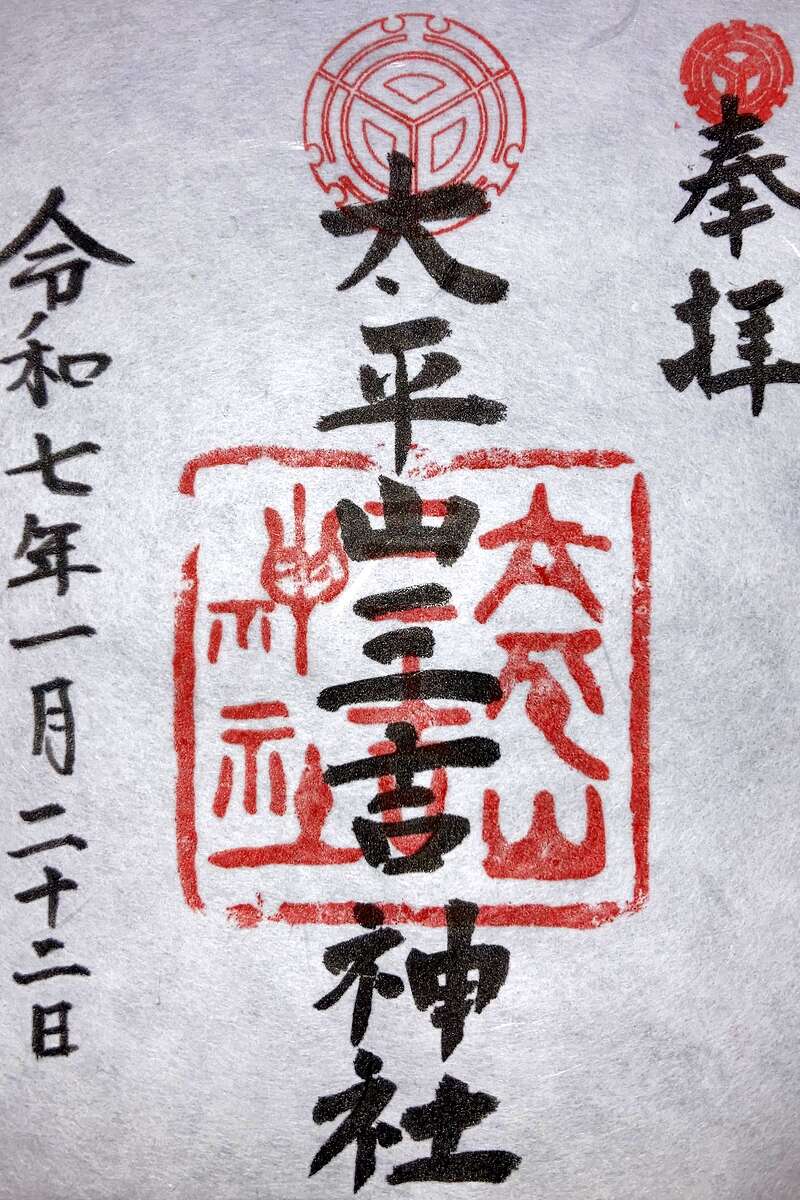 奉拝
太平山三吉神社
太平山三吉神社
令和七年一月二十二日